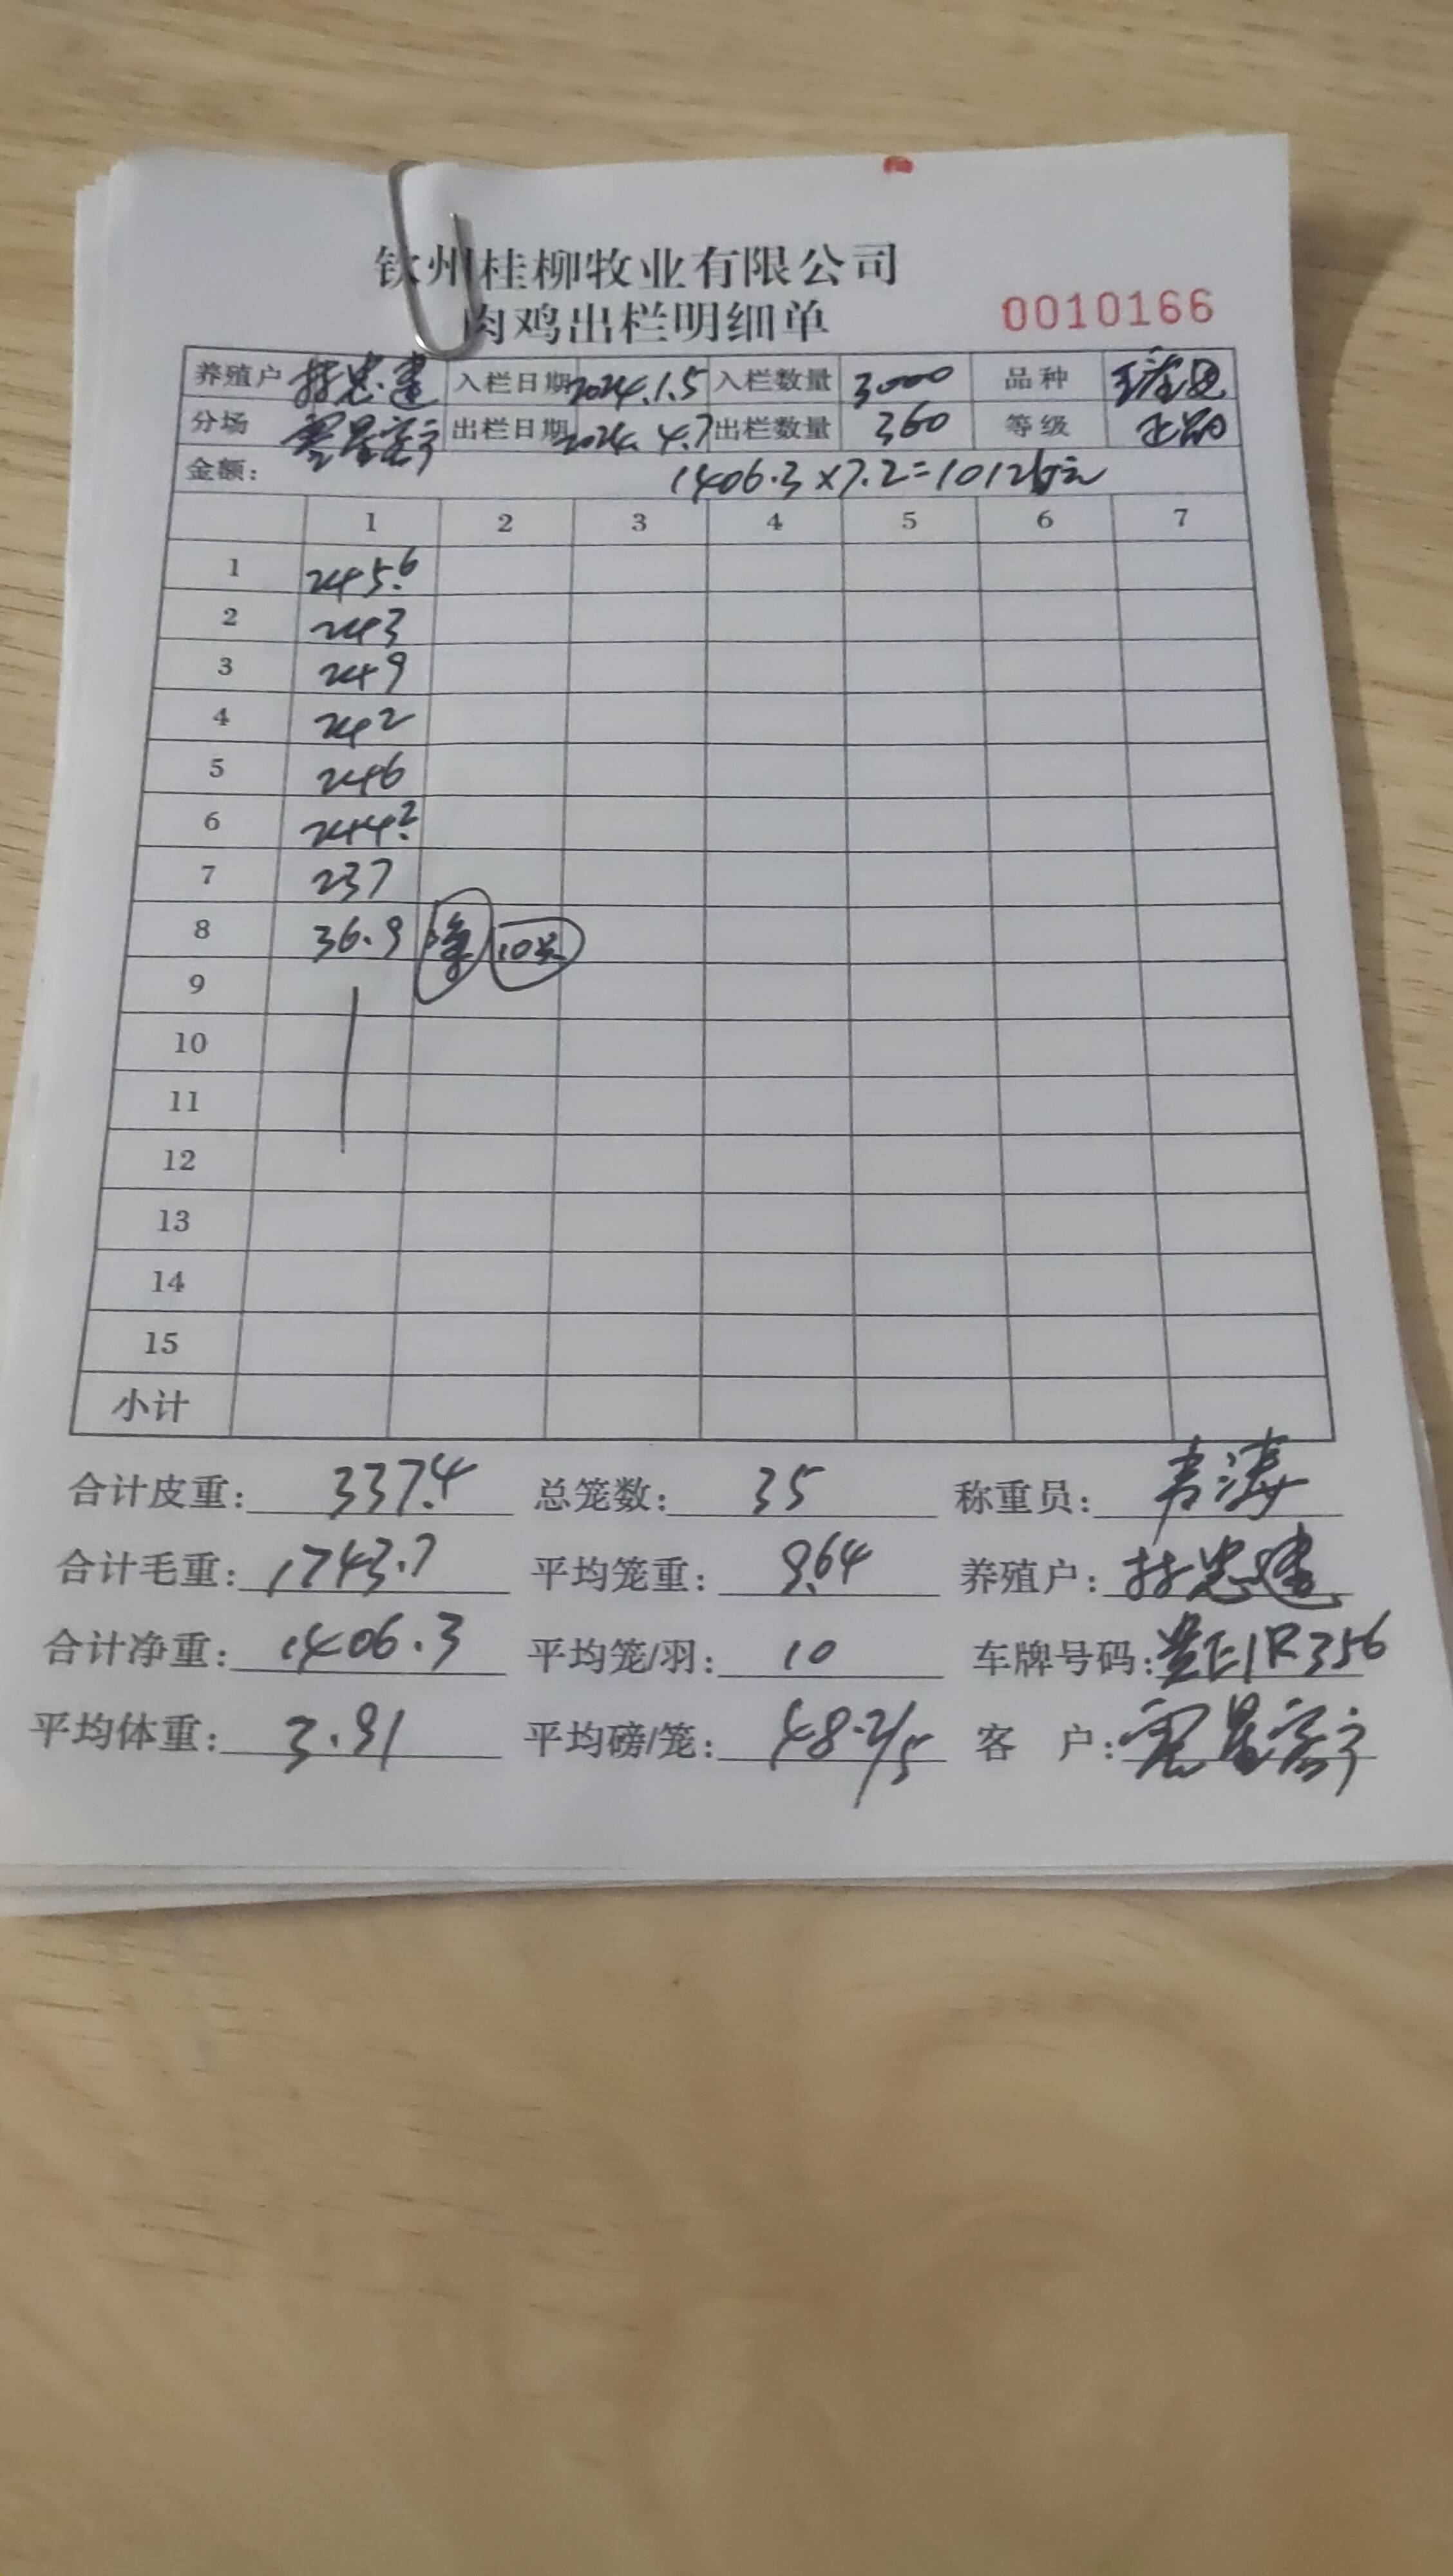 钦州桂柳牧业有限公司
肉鸡出栏明细单 0010166
养殖户 忠建 入栏日期 2024.1.5 入栏数量 3000 品种
分场 出栏日期 2024.4.7 出栏数量 360 等级 正品
金额： 1406.3×7.2=10125元
1 2 3 4 5 6 7
1 245.6
2 243
3 249
4 242
5 246
6 244.2
7 237
8 36.9 净 10只
9
10
11
12
13
14
15
小计
合计皮重： 337.4 总笼数： 35 称重员： 韦涛
合计毛重： 1743.7 平均笼重： 9.64 养殖户： 忠建
合计净重： 1406.3 平均笼/羽： 10 车牌号码： 贵E1R356
平均体重： 3.91 平均磅/笼： 48.2/5 客 户：